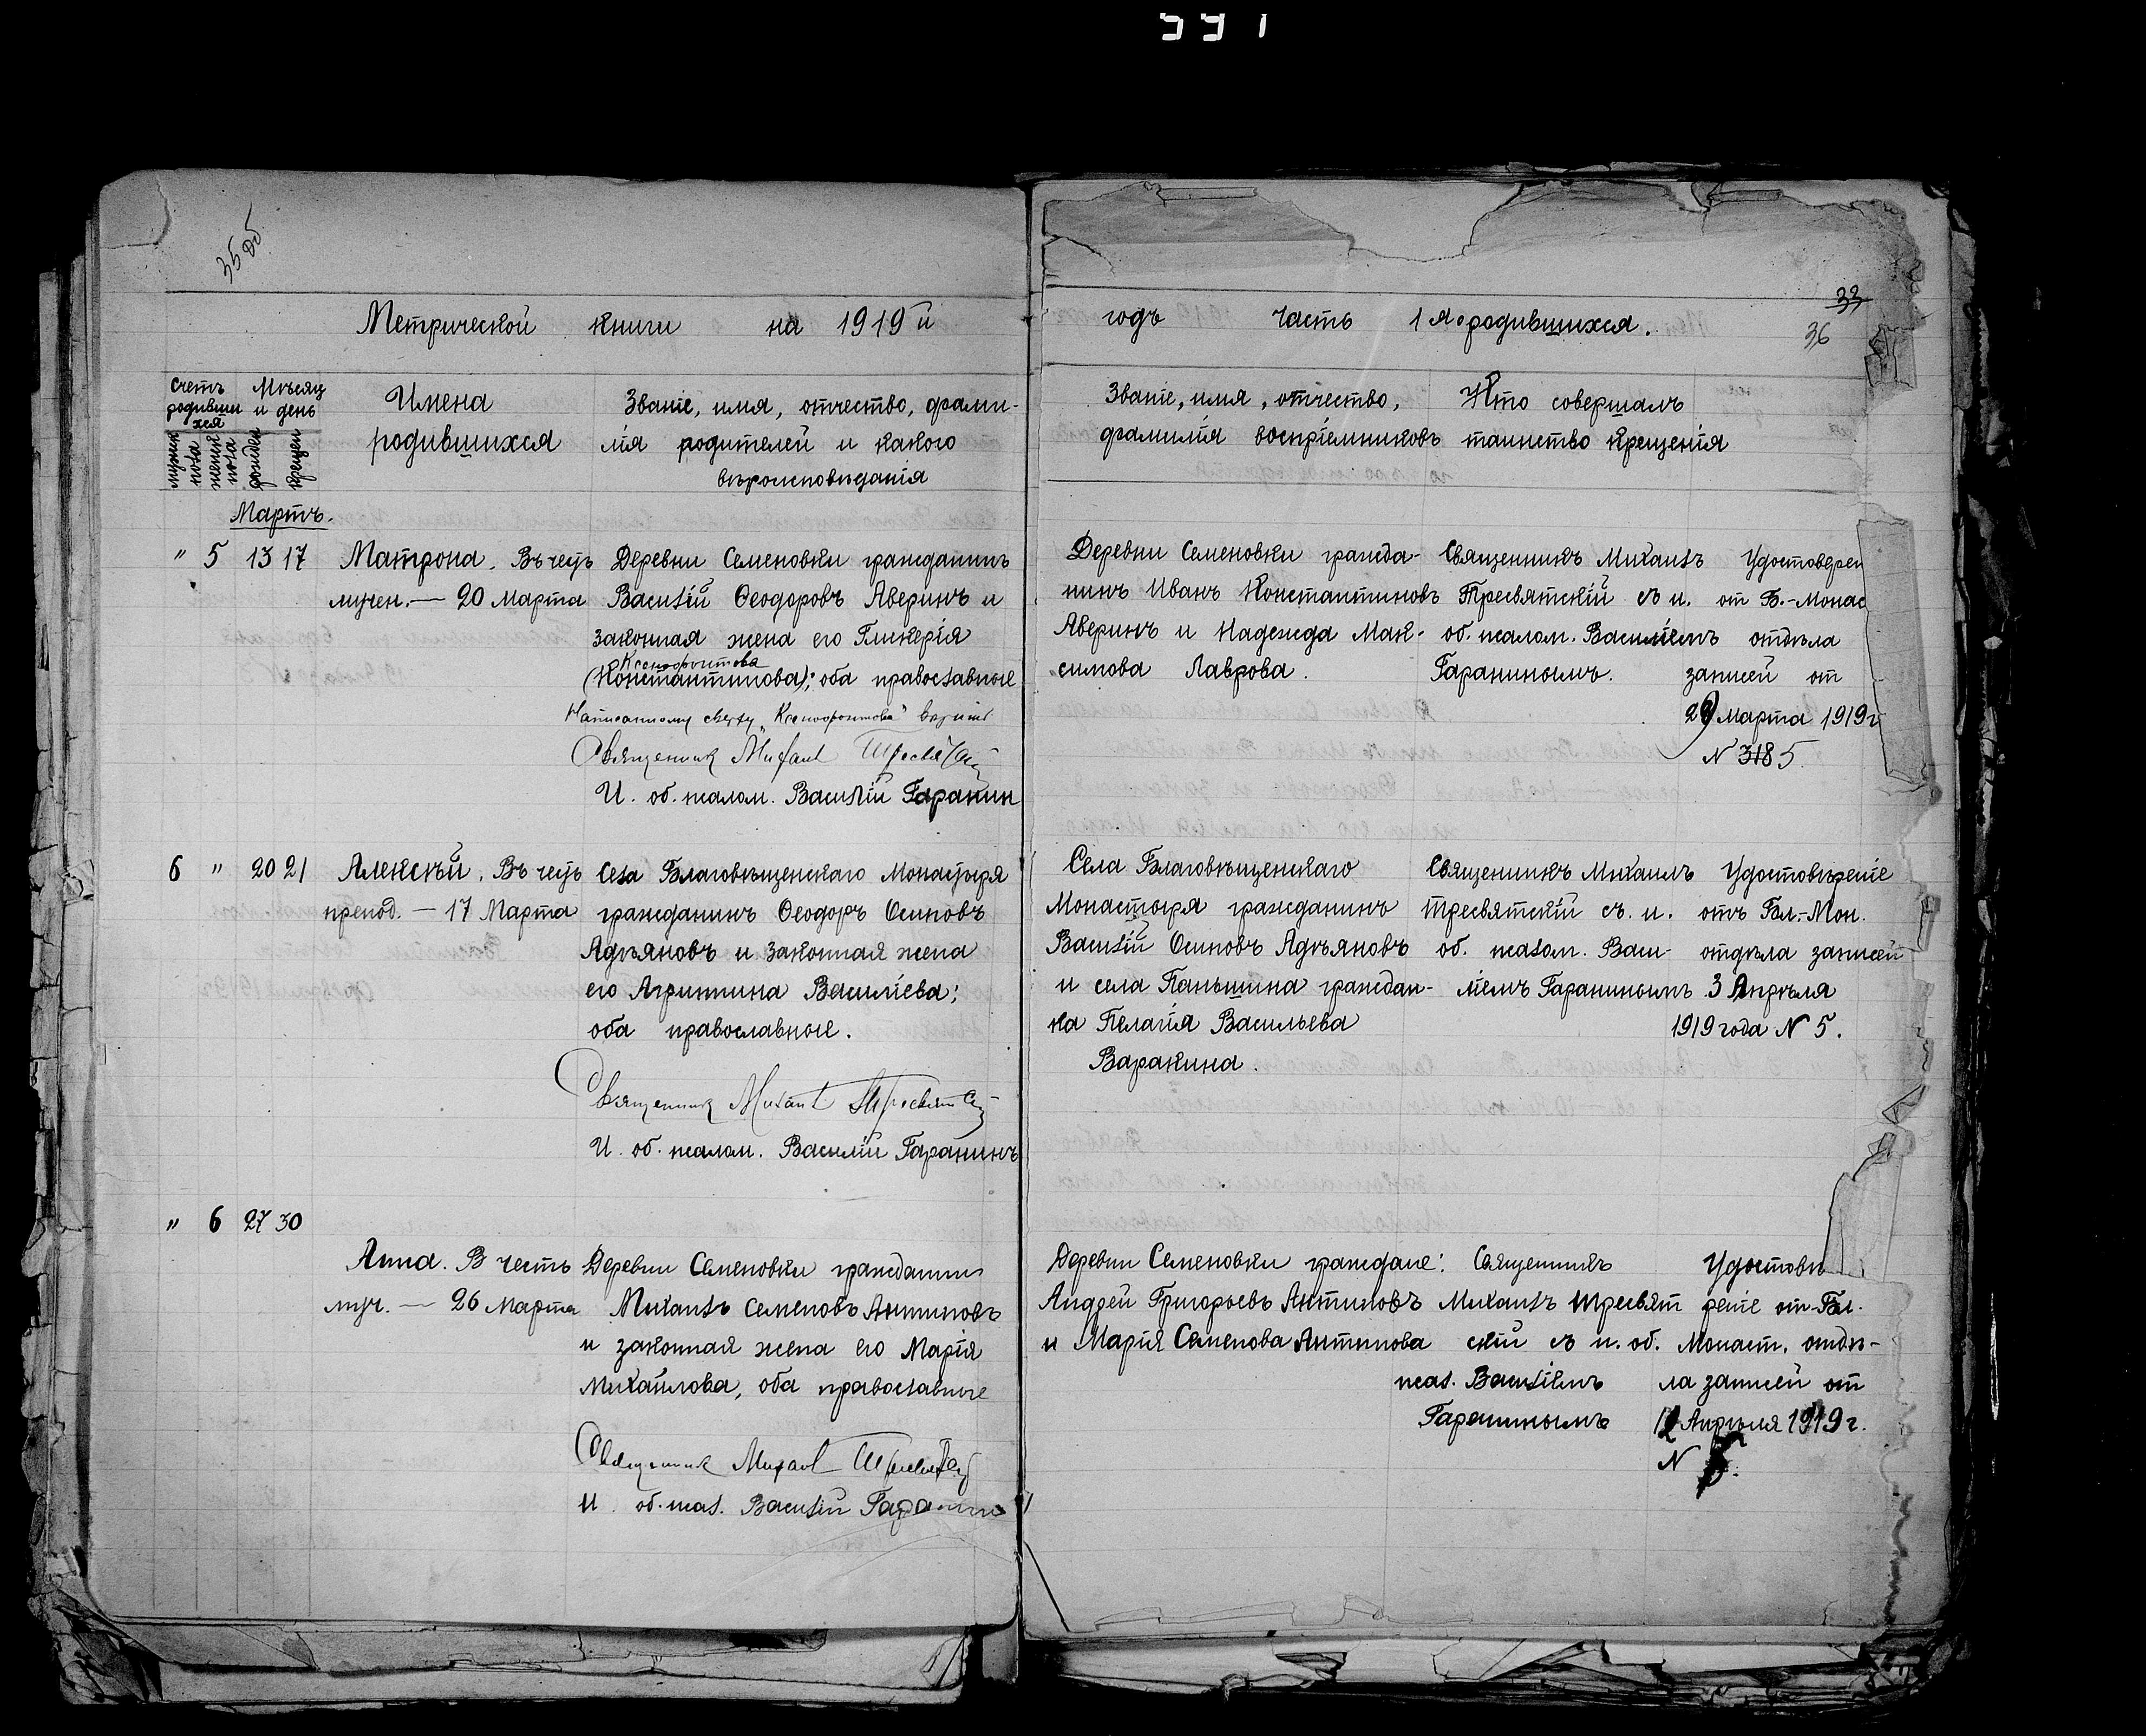 35 об
Метрической книги на 1919 й
Счетъ родивши хся
Мѣсяц и день
мужск пола
женск пола
рожден
крещен
Имена
родившихся
Званіе, имя, отчество, фами-
лія родителей и какого
вѣроисповѣданія
Мартъ.
" 5 13 17
Матрона. Въ честь
мучен. — 20 Марта
Деревни Семеновки гражданинъ
Василій Ѳеодоровъ Аверинъ и
законная жена его Гликерія
Ксенофонтова
(Константинова); оба православные
Написанному сверху „Ксенофонтова" верить
Священник Михаил Тресвятский
И. об. псалом. Василій Гаранин
6 " 20 21
Алексѣй. Въ честь
препод. — 17 Марта
Села Благовѣщенскаго Монастыря
гражданинъ Ѳеодоръ Осиповъ
Адѣяновъ и законная жена
его Агриппина Василіева;
оба православные.
Священник Михаил Тресвятский
И. об. псалом. Василій Гаранинъ
" 6 27 30
Анна. В честь
муч. — 26 Марта
Деревни Семеновки гражданин
Михаилъ Семеновъ Антиповъ
и законная жена его Марія
Михайлова, оба православные
Священник Михаил Тресвятский
И. об. псал. Василій Гаранинъ
33
36
годъ часть 1 я о родившихся.
Званіе, имя, отчество,
фамилія воспріемниковъ
Кто совершалъ
таинство крещенія
Деревни Семеновки гражда-
нинъ Иванъ Константиновъ
Аверинъ и Надежда Мак-
симова Лаврова.
Священникъ Михаилъ
Тресвятскій съ и.
об. псалом. Василіемъ
Гаранинымъ.
Удостоверен
от Б.-Монас
отдѣла
записей от
29 Марта 1919 г
N 3185.
Села Благовѣщенскаго
Монастыря гражданинъ
Василій Осиповъ Адѣяновъ
и села Паньшина граждан-
ка Пелагія Васильева
Варакина.
Священникъ Михаилъ
Тресвятскій съ. и.
об. псалом. Васи-
ліемъ Гаранинымъ
Удостовѣреніе
отъ Бл.-Мон.
отдѣла записей
3 Апрѣля
1919 года N 5.
Деревни Семеновки граждане:
Андрей Григорьевъ Антиповъ
и Марія Семенова Антипова
Священникъ
Михаилъ Тресвят
скій съ и. об.
псал. Василіемъ
Гаранинымъ
Удостовѣ
реніе от Бл.
Монаст. отдѣ-
ла записей от
12 Апрѣля 1919 г.
N